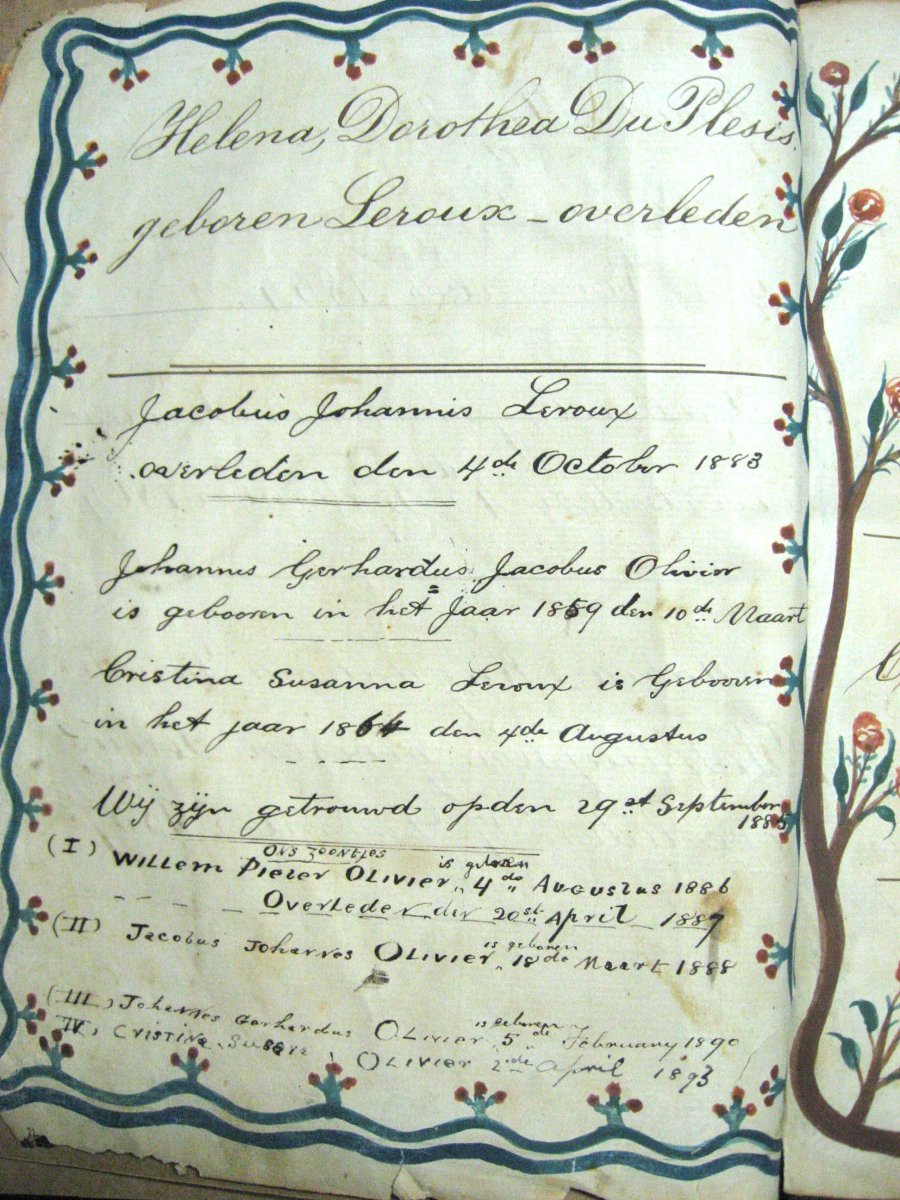 Helena, Dorothea Du Plesis.
geboren Leroux - overleden
Jacobus Johannis Leroux
overleden den 4de October 1883
Johannes Gerhardus Jacobus Olivier
is gebooren in het Jaar 1859 den 10de Maart
Cristina Susanna Leroux is Gebooren
in het jaar 1864 den 4de Augustus
Wij zijn getrouwd op den 29st September
1885
Ons zoontjes
(I) Willem Pieter Olivier is geboren 4de Augustus 1886
Overleden den 20st April 1887
(II) Jacobus Johannes Olivier is geboren 18de Maart 1888
(III) Johannes Gerhardus Olivier is geboren 5de February 1890
IV, Cristina Olivier 2de April 1893